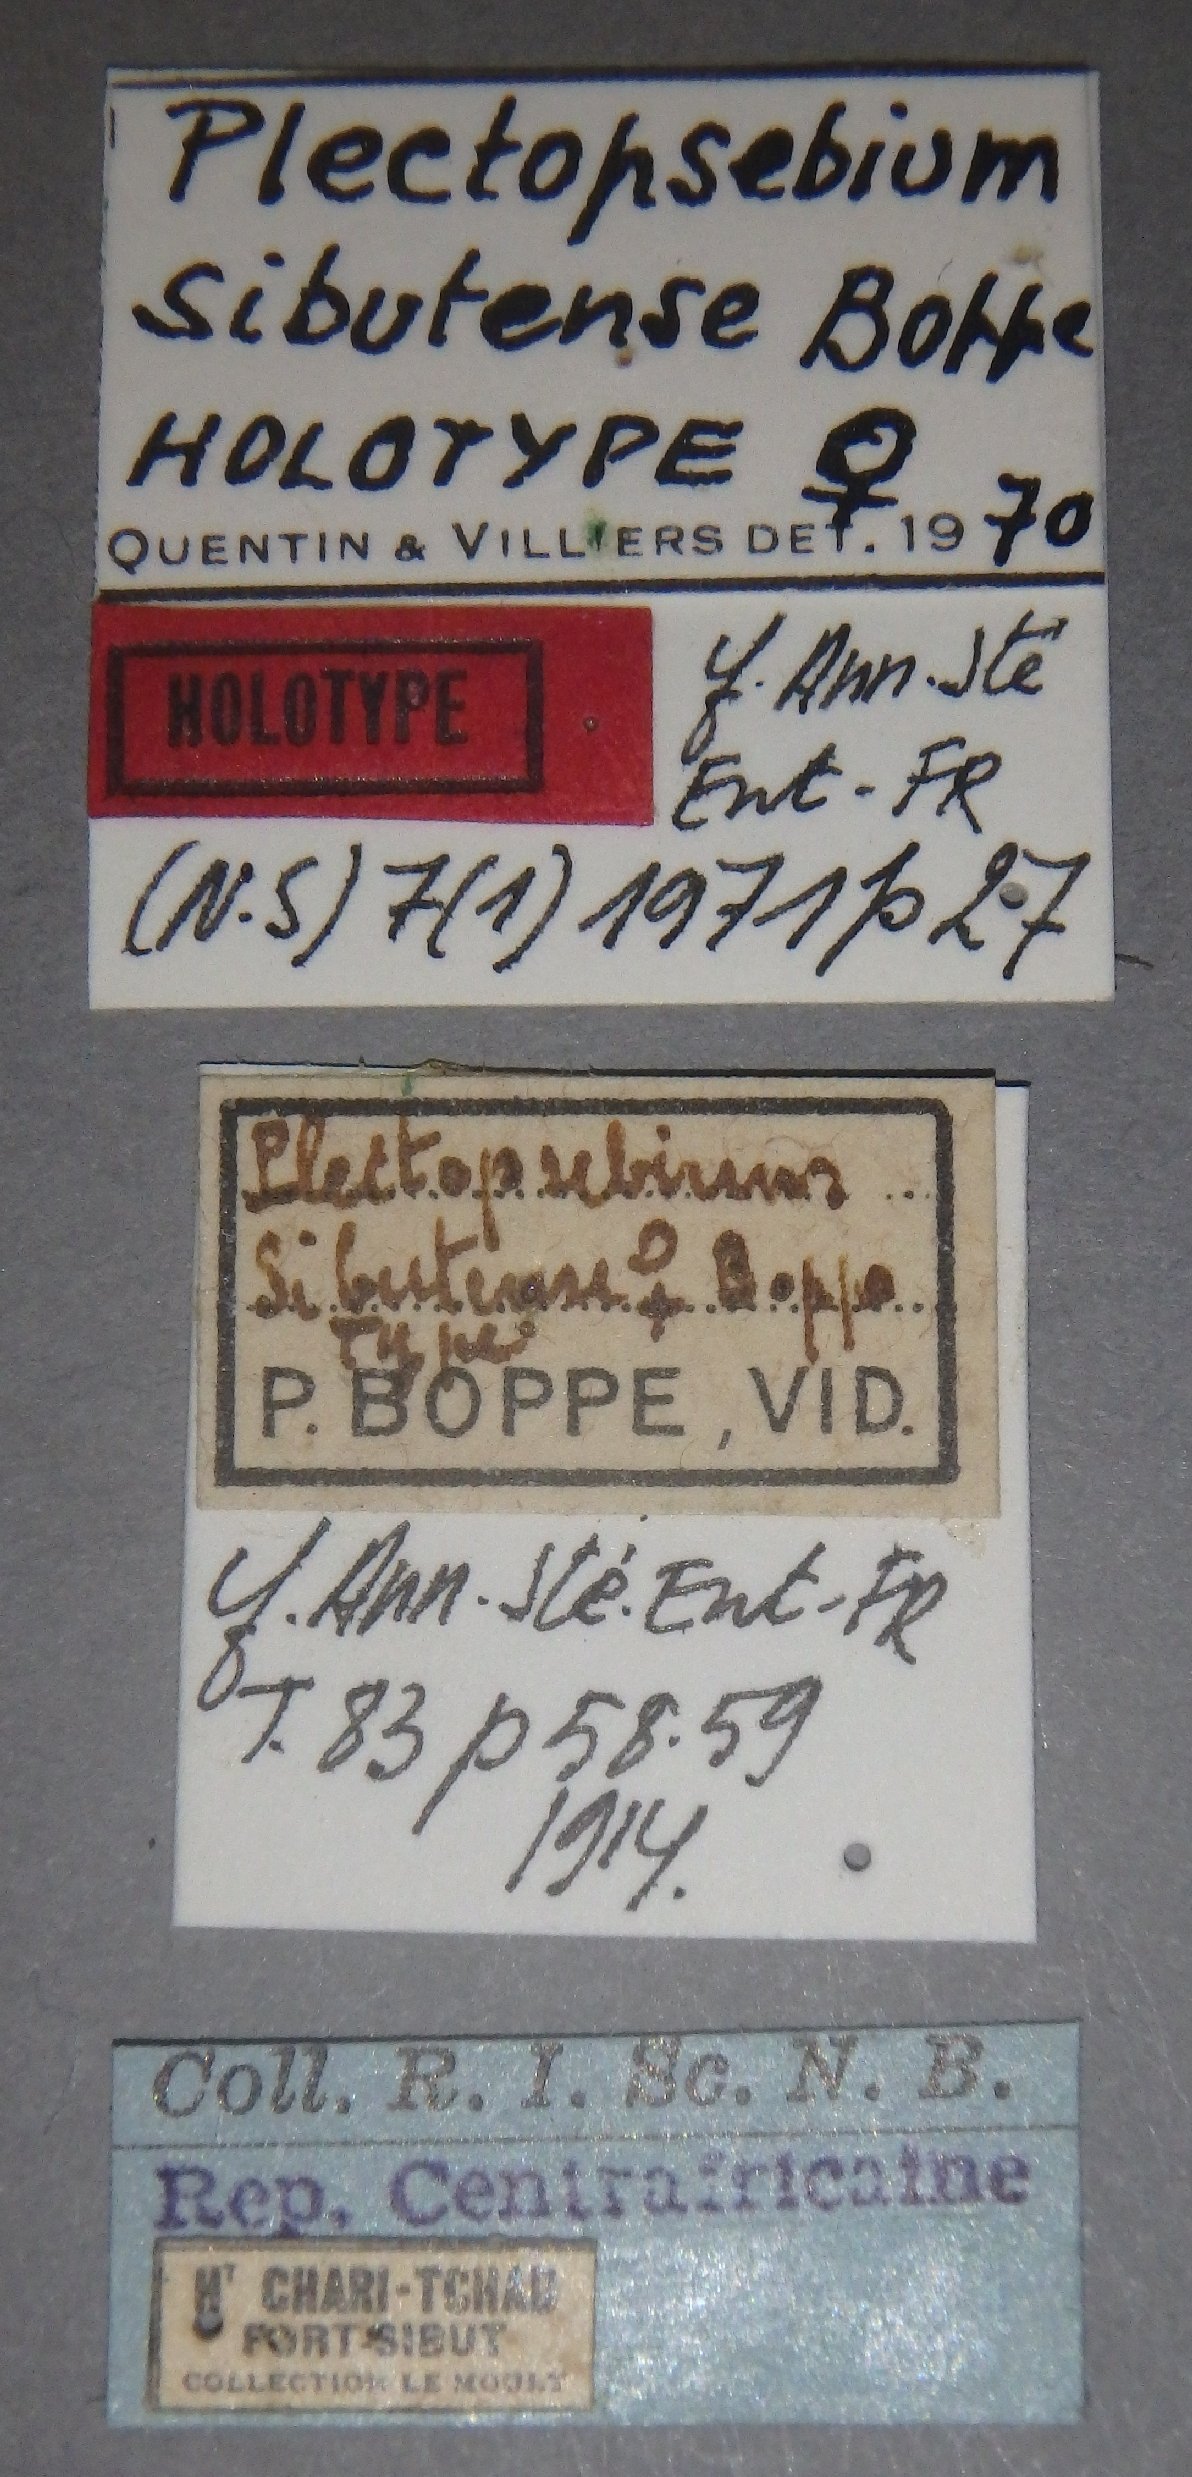 Plectopsebium
sibutense Boppe
HOLOTYPE ♀
QUENTIN & VILLIERS DET. 1970
HOLOTYPE
cf. Ann. Sté
Ent. FR
(N.S) 7(1) 1971 p 27
Plectopsebium
Sibutense ♀ Boppe
Type
P. BOPPE, VID.
cf. Ann. Sté. Ent. FR
T. 83 p 58.59
1914.
Coll. R. I. Sc. N. B.
Rep. Centrafricaine
HT CHARI-TCHAD
FORT-SIBUT
COLLECTION LE MOULT